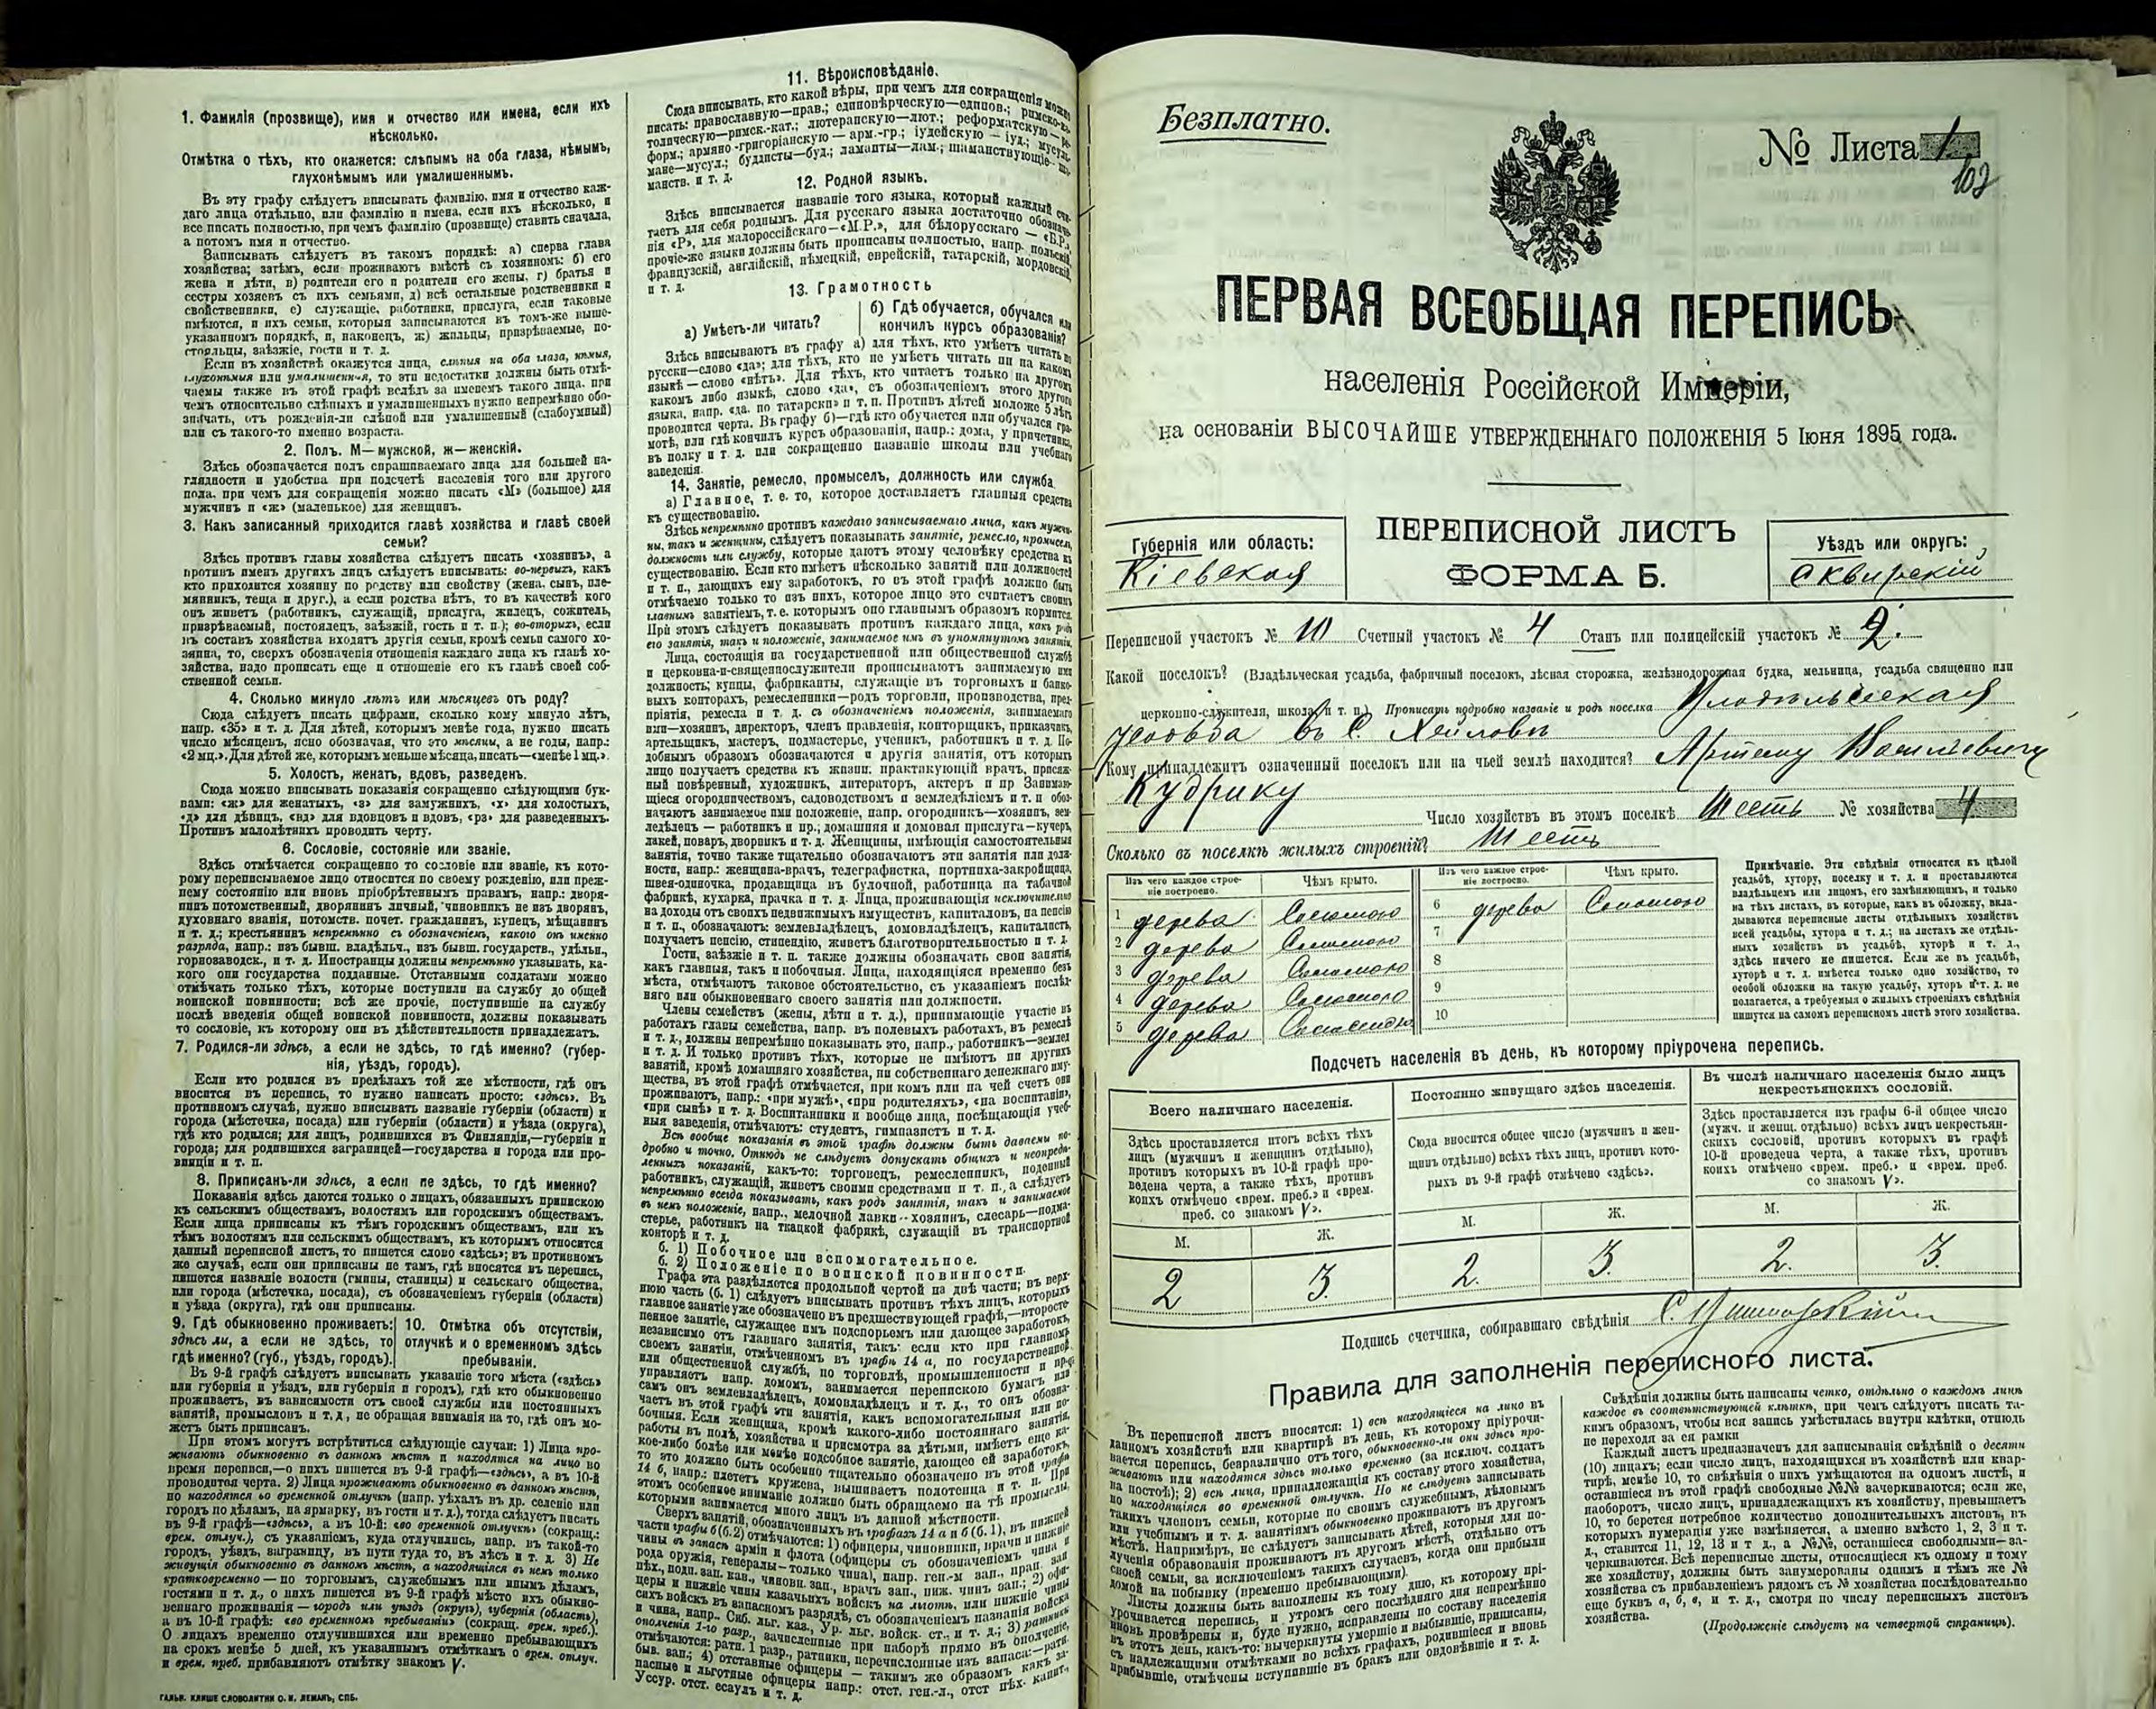 1. Фамилія (прозвище), имя и отчество или имена, если ихъ
нѣсколько.
Отмѣтка о тѣхъ, кто окажется: слѣпымъ на оба глаза, нѣмымъ,
глухонѣмымъ или умалишеннымъ.
Въ эту графу слѣдуетъ вписывать фамилію, имя и отчество каж-
даго лица отдѣльно, или фамилію и имена, если ихъ нѣсколько, и
все писать полностью, при чемъ фамилію (прозвище) ставить сначала,
а потомъ имя и отчество.
Записывать слѣдуетъ въ такомъ порядкѣ: а) сперва глава
хозяйства; затѣмъ, если проживаютъ вмѣстѣ съ хозяиномъ: б) его
жена и дѣти, в) родители его и родители его жены, г) братья и
сестры хозяевъ съ ихъ семьями, д) всѣ остальные родственники и
свойственники, е) служащіе, работники, прислуга, если таковые
имѣются, и ихъ семьи, которыя записываются въ томъ-же выше-
указанномъ порядкѣ, и, наконецъ, ж) жильцы, призрѣваемые, по-
стояльцы, заѣзжіе, гости и т. д.
Если въ хозяйствѣ окажутся лица, слѣпыя на оба глаза, нѣмыя,
глухонѣмыя или умалишенныя, то эти недостатки должны быть отмѣ-
чаемы также въ этой графѣ вслѣдъ за именемъ такого лица, при
чемъ относительно слѣпыхъ и умалишенныхъ нужно непремѣнно обо-
значать, отъ рожденія-ли слѣпой или умалишенный (слабоумный)
или съ такого-то именно возраста.
2. Полъ. М—мужской, ж—женскій.
Здѣсь обозначается полъ спрашиваемаго лица для большей на-
глядности и удобства при подсчетѣ населенія того или другого
пола, при чемъ для сокращенія можно писать «М» (большое) для
мужчинъ и «ж» (маленькое) для женщинъ.
3. Какъ записанный приходится главѣ хозяйства и главѣ своей
семьи?
Здѣсь противъ главы хозяйства слѣдуетъ писать «хозяинъ», а
противъ именъ другихъ лицъ слѣдуетъ вписывать: во-первыхъ, какъ
кто приходится хозяину по родству или свойству (жена, сынъ, пле-
мянникъ, теща и друг.), а если родства нѣтъ, то въ качествѣ кого
онъ живетъ (работникъ, служащій, прислуга, жилецъ, сожитель,
призрѣваемый, постоялецъ, заѣзжій, гость и т. п.); во-вторыхъ, если
въ составъ хозяйства входятъ другія семьи, кромѣ семьи самого хо-
зяина, то, сверхъ обозначенія отношенія каждаго лица къ главѣ хо-
зяйства, надо прописать еще и отношеніе его къ главѣ своей соб-
ственной семьи.
4. Сколько минуло лѣтъ или мѣсяцевъ отъ роду?
Сюда слѣдуетъ писать цифрами, сколько кому минуло лѣтъ,
напр. «35» и т. д. Для дѣтей, которымъ менѣе года, нужно писать
число мѣсяцевъ, ясно обозначая, что это мѣсяцы, а не годы, напр.:
«2 мц.». Для дѣтей же, которымъ меньше мѣсяца, писать—«менѣе 1 мц.».
5. Холостъ, женатъ, вдовъ, разведенъ.
Сюда можно вписывать показанія сокращенно слѣдующими бук-
вами: «ж» для женатыхъ, «з» для замужнихъ, «х» для холостыхъ,
«д» для дѣвицъ, «вд» для вдовцовъ и вдовъ, «рз» для разведенныхъ.
Противъ малолѣтнихъ проводить черту.
6. Сословіе, состояніе или званіе.
Здѣсь отмѣчается сокращенно то сословіе или званіе, къ кото-
рому переписываемое лицо относится по своему рожденію, или преж-
нему состоянію или вновь пріобрѣтеннымъ правамъ, напр.: дворя-
нинъ потомственный, дворянинъ личный, чиновникъ не изъ дворянъ,
духовнаго званія, потомств. почет. гражданинъ, купецъ, мѣщанинъ
и т. д.; крестьянинъ непремѣнно съ обозначеніемъ, какого онъ именно
разряда, напр.: изъ бывш. владѣльч., изъ бывш. государств., удѣльн.,
горнозаводск., и т. д. Иностранцы должны непремѣнно указывать, ка-
кого они государства подданные. Отставными солдатами можно
отмѣчать только тѣхъ, которые поступили на службу до общей
воинской повинности; всѣ же прочіе, поступившіе на службу
послѣ введенія общей воинской повинности, должны показывать
то сословіе, къ которому они въ дѣйствительности принадлежатъ.
7. Родился-ли здѣсь, а если не здѣсь, то гдѣ именно? (губер-
нія, уѣздъ, городъ).
Если кто родился въ предѣлахъ той же мѣстности, гдѣ онъ
вносится въ перепись, то нужно написать просто: «здѣсь». Въ
противномъ случаѣ, нужно вписывать названіе губерніи (области) и
города (мѣстечка, посада) или губерніи (области) и уѣзда (округа),
гдѣ кто родился; для лицъ, родившихся въ Финляндіи,—губерніи и
города; для родившихся заграницей—государства и города или про-
винціи и т. п.
8. Приписанъ-ли здѣсь, а если не здѣсь, то гдѣ именно?
Показанія здѣсь даются только о лицахъ, обязанныхъ припискою
къ сельскимъ обществамъ, волостямъ или городскимъ обществамъ.
Если лица приписаны къ тѣмъ городскимъ обществамъ, или къ
тѣмъ волостямъ или сельскимъ обществамъ, къ которымъ относится
данный переписной листъ, то пишется слово «здѣсь»; въ противномъ
же случаѣ, если они приписаны не тамъ, гдѣ вносятся въ перепись,
пишется названіе волости (гмины, станицы) и сельскаго общества,
или города (мѣстечка, посада), съ обозначеніемъ губерніи (области)
и уѣзда (округа), гдѣ они приписаны.
9. Гдѣ обыкновенно проживаетъ:
здѣсь ли, а если не здѣсь, то
гдѣ именно? (губ., уѣздъ, городъ).
10. Отмѣтка объ отсутствіи,
отлучкѣ и о временномъ здѣсь
пребываніи.
Въ 9-й графѣ слѣдуетъ вписывать указаніе того мѣста («здѣсь»
или губернія и уѣздъ, или губернія и городъ), гдѣ кто обыкновенно
проживаетъ, въ зависимости отъ своей службы или постоянныхъ
занятій, промысловъ и т.д, не обращая вниманія на то, гдѣ онъ мо-
жетъ быть приписанъ.
При этомъ могутъ встрѣтиться слѣдующіе случаи: 1) Лица про-
живаютъ обыкновенно въ данномъ мѣстѣ и находятся на лицо во
время переписи,—о нихъ пишется въ 9-й графѣ—«здѣсь», а въ 10-й
проводится черта. 2) Лица проживаютъ обыкновенно въ данномъ мѣстѣ,
но находятся во временной отлучкѣ (напр. уѣхалъ въ др. селеніе или
городъ по дѣламъ, на ярмарку, въ гости и т. д.), тогда слѣдуетъ писать
въ 9-й графѣ—«здѣсь», а въ 10-й: «во временной отлучкѣ» (сокращ.:
врем. отлуч.), съ указаніемъ, куда отлучились, напр. въ такой-то
городъ, уѣздъ, заграницу, въ пути туда то, въ лѣсъ и т. д. 3) Не
живущія обыкновенно въ данномъ мѣстѣ, а находящіяся въ немъ только
кратковременно — по торговымъ, служебнымъ или инымъ дѣламъ,
гостями и т. д., о нихъ пишется въ 9-й графѣ мѣсто ихъ обыкно-
веннаго проживанія — городъ или уѣздъ (округъ), губернія (область),
а въ 10-й графѣ: «во временномъ пребываніи» (сокращ. врем. преб.).
О лицахъ временно отлучившихся или временно пребывающихъ
на срокъ менѣе 5 дней, къ указаннымъ отмѣткамъ о врем. отлуч.
и врем. преб. прибавляютъ отмѣтку знакомъ V.
ГАЛЬВ. КЛИШЕ СЛОВОЛИТНИ О. И. ЛЕМАНЪ, СПБ.
11. Вѣроисповѣданіе.
Сюда вписывать, кто какой вѣры, при чемъ для сокращенія можно
писать: православную—прав.; единовѣрческую—единов.; римско-ка-
толическую—римск.-кат.; лютеранскую—лют.; реформатскую—ре-
форм.; армяно-григоріанскую — арм.-гр.; іудейскую — іуд.; мусуль-
мане—мусул.; буддисты—буд.; ламаиты—лам.; шаманствующіе—ша-
манств. и т. д.
12. Родной языкъ.
Здѣсь вписывается названіе того языка, который каждый счи-
таетъ для себя роднымъ. Для русскаго языка достаточно обозначе-
нія «Р», для малороссійскаго—«М.Р.», для бѣлорусскаго — «Б.Р.»,
прочіе-же языки должны быть прописаны полностью, напр. польскій,
французскій, англійскій, нѣмецкій, еврейскій, татарскій, мордовскій
и т. д.
13. Грамотность
а) Умѣетъ-ли читать?
б) Гдѣ обучается, обучался или
кончилъ курсъ образованія?
Здѣсь вписываютъ въ графу а) для тѣхъ, кто умѣетъ читать по
русски—слово «да»; для тѣхъ, кто не умѣетъ читать ни на какомъ
языкѣ — слово «нѣтъ». Для тѣхъ, кто читаетъ только на другомъ
какомъ либо языкѣ, слово «да», съ обозначеніемъ этого другого
языка, напр. «да. по татарски» и т. п. Противъ дѣтей моложе 5 лѣтъ
проводится черта. Въ графу б)—гдѣ кто обучается или обучался гра-
мотѣ, или гдѣ кончилъ курсъ образованія, напр.: дома, у причетника,
въ полку и т. д. или сокращенно названіе школы или учебнаго
заведенія.
14. Занятіе, ремесло, промыселъ, должность или служба
а) Главное, т. е. то, которое доставляетъ главныя средства
къ существованію.
Здѣсь непремѣнно противъ каждаго записываемаго лица, какъ мужчи-
ны, такъ и женщины, слѣдуетъ показывать занятіе, ремесло, промыселъ,
должность или службу, которые даютъ этому человѣку средства къ
существованію. Если кто имѣетъ нѣсколько занятій или должностей
и т. п., дающихъ ему заработокъ, то въ этой графѣ должно быть
отмѣчаемо только то изъ нихъ, которое лицо это считаетъ своимъ
главнымъ занятіемъ, т. е. которымъ оно главнымъ образомъ кормится.
При этомъ слѣдуетъ показывать противъ каждаго лица, какъ родъ
его занятія, такъ и положеніе, занимаемое имъ въ упомянутомъ занятіи.
Лица, состоящія на государственной или общественной службѣ
и церковно-и-священнослужители прописываютъ занимаемую ими
должность; купцы, фабриканты, служащіе въ торговыхъ и банко-
выхъ конторахъ, ремесленники—родъ торговли, производства, пред-
пріятія, ремесла и т. д. съ обозначеніемъ положенія, занимаемаго
ими—хозяинъ, директоръ, членъ правленія, конторщикъ, приказчикъ,
артельщикъ, мастеръ, подмастерье, ученикъ, работникъ и т. д. По-
добнымъ образомъ обозначаются и другія занятія, отъ которыхъ
лицо получаетъ средства къ жизни: практикующій врачъ, присяж-
ный повѣренный, художникъ, литераторъ, актеръ и пр Занимаю-
щіеся огородничествомъ, садоводствомъ и земледѣліемъ и т. п обоз-
начаютъ занимаемое ими положеніе, напр. огородникъ—хозяинъ, зем-
ледѣлецъ — работникъ и пр.; домашняя и домовая прислуга—кучеръ,
лакей, поваръ, дворникъ и т. д. Женщины, имѣющія самостоятельныя
занятія, точно также тщательно обозначаютъ эти занятія или долж-
ности, напр.: женщина-врачъ, телеграфистка, портниха-закройщица,
швея-одиночка, продавщица въ булочной, работница на табачной
фабрикѣ, кухарка, прачка и т. д. Лица, проживающія исключительно
на доходы отъ своихъ недвижимыхъ имуществъ, капиталовъ, на пенсію
и т. п., обозначаютъ: землевладѣлецъ, домовладѣлецъ, капиталистъ,
получаетъ пенсію, стипендію, живетъ благотворительностью и т. д.
Гости, заѣзжіе и т. п. также должны обозначать свои занятія,
какъ главныя, такъ и побочныя. Лица, находящіяся временно безъ
мѣста, отмѣчаютъ таковое обстоятельство, съ указаніемъ послѣд-
няго или обыкновеннаго своего занятія или должности.
Члены семействъ (жены, дѣти и т. д.), принимающіе участіе въ
работахъ главы семейства, напр. въ полевыхъ работахъ, въ ремеслѣ
и т. д., должны непремѣнно показывать это, напр., работникъ—землед
и т. д. И только противъ тѣхъ, которые не имѣютъ ни другихъ
занятій, кромѣ домашняго хозяйства, ни собственнаго денежнаго иму-
щества, въ этой графѣ отмѣчается, при комъ или на чей счетъ они
проживаютъ, напр.: «при мужѣ», «при родителяхъ», «на воспитаніи»,
«при сынѣ» и т. д. Воспитанники и вообще лица, посѣщающія учеб-
ныя заведенія, отмѣчаютъ: студентъ, гимназистъ и т. д.
Всѣ вообще показанія въ этой графѣ должны быть даваемы по-
дробно и точно. Отнюдь не слѣдуетъ допускать общихъ и неопредѣ-
ленныхъ показаній, какъ-то: торговецъ, ремесленникъ, поденный
работникъ, служащій, живетъ своими средствами и т. п., а слѣдуетъ
непремѣнно всегда показывать, какъ родъ занятія, такъ и занимаемое
въ немъ положеніе, напр., мелочной лавки--хозяинъ, слесарь—подма-
стерье, работникъ на ткацкой фабрикѣ, служащій въ транспортной
конторѣ и т. д.
б. 1) Побочное или вспомогательное.
б. 2) Положеніе по воинской повинности.
Графа эта раздѣляется продольной чертой на двѣ части; въ верх-
нюю часть (б. 1) слѣдуетъ вписывать противъ тѣхъ лицъ, которыхъ
главное занятіе уже обозначено въ предшествующей графѣ,—второсте-
пенное занятіе, служащее имъ подспорьемъ или дающее заработокъ,
независимо отъ главнаго занятія, такъ: если кто при главномъ
своемъ занятіи, отмѣченномъ въ графѣ 14 а, по государственной
или общественной службѣ, по торговлѣ, промышленности и пр.,
управляетъ напр. домомъ, занимается перепискою бумагъ или
самъ онъ землевладѣлецъ, домовладѣлецъ и т. д., то онъ обозна-
чаетъ въ этой графѣ эти занятія, какъ вспомогательныя или по-
бочныя. Если женщина, кромѣ какого-либо постояннаго занятія,
работы въ полѣ, хозяйства и присмотра за дѣтьми, имѣетъ еще ка-
кое-либо болѣе или менѣе подсобное занятіе, дающее ей заработокъ,
то это должно быть особенно тщательно обозначено въ этой графѣ
14 б, напр.: плететъ кружева, вышиваетъ полотенца и т. п. При
этомъ особенное вниманіе должно быть обращаемо на тѣ промыслы,
которыми занимается много лицъ въ данной мѣстности.
Сверхъ занятій, обозначенныхъ въ графахъ 14 а и б (б. 1), въ нижней
части графы б (б.2) отмѣчаются: 1) офицеры, чиновники, врачи и нижніе
чины въ запасѣ арміи и флота (офицеры съ обозначеніемъ чина и
рода оружія, генералы—только чина), напр. ген.-м зап., прап. зап
пѣх., подп. зап. кав., чиновн. зап., врачъ зап., ниж. чинъ зап.; 2) офи-
церы и нижніе чины казачьихъ войскъ на льготѣ, или нижніе чины
сихъ войскъ въ запасномъ разрядѣ, съ обозначеніемъ названія войска
и чина, напр.. Сиб. льг. каз., Ур. льг. войск. ст., и т. д.; 3) ратники
ополченія 1-го разр., зачисленные при наборѣ прямо въ ополченіе,
отмѣчаются: ратн. 1 разр., ратники, перечисленные изъ запаса:—ратн.
быв. зап.; 4) отставные офицеры — такимъ же образомъ какъ за-
пасные и льготные офицеры напр.: отст. ген.-л., отст пѣх. капит.,
Уссур. отст. есаулъ и т. д.
Безплатно.
№ Листа 1
102
ПЕРВАЯ ВСЕОБЩАЯ ПЕРЕПИСЬ
населенія Россійской Имперіи,
на основаніи ВЫСОЧАЙШЕ УТВЕРЖДЕННАГО ПОЛОЖЕНІЯ 5 Іюня 1895 года.
Губернія или область:
Кіевская
ПЕРЕПИСНОЙ ЛИСТЪ
ФОРМА Б.
Уѣздъ или округъ:
Сквирскій
Переписной участокъ № 10 Счетный участокъ № 4 Станъ или полицейскій участокъ № 2.
Какой поселокъ? (Владѣльческая усадьба, фабричный поселокъ, лѣсная сторожка, желѣзнодорожная будка, мельница, усадьба священно или
церковно-служителя, школа и т. п.) Прописать подробно названіе и родъ поселка Владѣльческая
усадьба въ С.
Кому принадлежитъ означенный поселокъ или на чьей землѣ находится? Артему Васильевичу
Кудрику
Число хозяйствъ въ этомъ поселкѣ Шесть № хозяйства 4
Сколько въ поселкѣ жилыхъ строеній? Шесть
Изъ чего каждое строе-
ніе построено.
Чѣмъ крыто.
Изъ чего каждое строе-
ніе построено.
Чѣмъ крыто.
1 дерева Соломою
2 дерева Соломою
3 дерева Соломою
4 дерева Соломою
5 дерева Соломою
6 дерева Соломою
7
8
9
10
Примѣчаніе. Эти свѣдѣнія относятся къ цѣлой
усадьбѣ, хутору, поселку и т. д. и проставляются
владѣльцемъ или лицомъ, его замѣняющимъ, и только
на тѣхъ листахъ, въ которые, какъ въ обложку, вкла-
дываются переписные листы отдѣльныхъ хозяйствъ
всей усадьбы, хутора и т. д.; на листахъ же отдѣль-
ныхъ хозяйствъ въ усадьбѣ, хуторѣ и т. д.,
здѣсь ничего не пишется. Если же въ усадьбѣ,
хуторѣ и т. д. имѣется только одно хозяйство, то
особой обложки на такую усадьбу, хуторъ и т. д. не
полагается, а требуемыя о жилыхъ строеніяхъ свѣдѣнія
пишутся на самомъ переписномъ листѣ этого хозяйства.
Подсчетъ населенія въ день, къ которому пріурочена перепись.
Всего наличнаго населенія.
Здѣсь проставляется итогъ всѣхъ тѣхъ
лицъ (мужчинъ и женщинъ отдѣльно),
противъ которыхъ въ 10-й графѣ про-
ведена черта, а также тѣхъ, противъ
коихъ отмѣчено «врем. преб.» и «врем.
преб. со знакомъ V».
Постоянно живущаго здѣсь населенія.
Сюда вносится общее число (мужчинъ и жен-
щинъ отдѣльно) всѣхъ тѣхъ лицъ, противъ кото-
рыхъ въ 9-й графѣ отмѣчено «здѣсь».
Въ числѣ наличнаго населенія было лицъ
некрестьянскихъ сословій.
Здѣсь проставляется изъ графы 6-й общее число
(мужч. и женщ. отдѣльно) всѣхъ лицъ некрестьян-
скихъ сословій, противъ которыхъ въ графѣ
10-й проведена черта, а также тѣхъ, противъ
коихъ отмѣчено «врем. преб.» и «врем. преб.
со знакомъ V».
М. Ж. М. Ж. М. Ж.
2 3. 2. 3. 2. 3.
Подпись счетчика, собиравшаго свѣдѣнія
Правила для заполненія переписного листа.
Въ переписной листъ вносятся: 1) всѣ находящіеся на лицо въ
данномъ хозяйствѣ или квартирѣ въ день, къ которому пріурочи-
вается перепись, безразлично отъ того, обыкновенно-ли они здѣсь про-
живаютъ или находятся здѣсь только временно (за исключ. солдатъ
на постоѣ); 2) всѣ лица, принадлежащія къ составу этого хозяйства,
но находящіяся во временной отлучкѣ. Но не слѣдуетъ записывать
такихъ членовъ семьи, которые по своимъ служебнымъ, дѣловымъ
или учебнымъ и т. д. занятіямъ обыкновенно проживаютъ въ другомъ
мѣстѣ. Напримѣръ, не слѣдуетъ записывать дѣтей, которыя для по-
лученія образованія проживаютъ въ другомъ мѣстѣ, отдѣльно отъ
своей семьи, за исключеніемъ такихъ случаевъ, когда они прибыли
домой на побывку (временно пребывающими).
Листы должны быть заполнены къ тому дню, къ которому прі-
урочивается перепись, и утромъ сего послѣдняго дня непремѣнно
вновь провѣрены и, буде нужно, исправлены по составу населенія
въ этотъ день, какъ-то: вычеркнуты умершіе и выбывшіе, приписаны,
съ надлежащими отмѣтками во всѣхъ графахъ, родившіеся и вновь
прибывшіе, отмѣчены вступившіе въ бракъ или овдовѣвшіе и т. д.
Свѣдѣнія должны быть написаны четко, отдѣльно о каждомъ лицѣ
каждое въ соотвѣтствующей клѣткѣ, при чемъ слѣдуетъ писать та-
кимъ образомъ, чтобы вся запись умѣстилась внутри клѣтки, отнюдь
не переходя за ея рамки
Каждый листъ предназначенъ для записыванія свѣдѣній о десяти
(10) лицахъ; если число лицъ, находящихся въ хозяйствѣ или квар-
тирѣ, менѣе 10, то свѣдѣнія о нихъ умѣщаются на одномъ листѣ, и
оставшіеся въ этой графѣ свободные №№ зачеркиваются; если же,
наоборотъ, число лицъ, принадлежащихъ къ хозяйству, превышаетъ
10, то берется потребное количество дополнительныхъ листовъ, въ
которыхъ нумерація уже измѣняется, а именно вмѣсто 1, 2, 3 и т.
д., ставится 11, 12, 13 и т д., а №№, оставшіеся свободными—за-
черкиваются. Всѣ переписные листы, относящіеся къ одному и тому
же хозяйству, должны быть занумерованы однимъ и тѣмъ же №
хозяйства съ прибавленіемъ рядомъ съ № хозяйства послѣдовательно
еще буквъ а, б, в, и т. д., смотря по числу переписныхъ листовъ
хозяйства.
(Продолженіе слѣдуетъ на четвертой страницѣ).